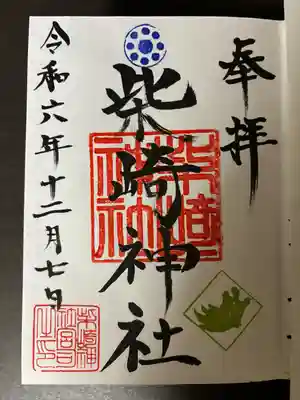 奉拝
柴崎神社
令和六年十二月七日
柴崎神社
柴崎神社宮司之印